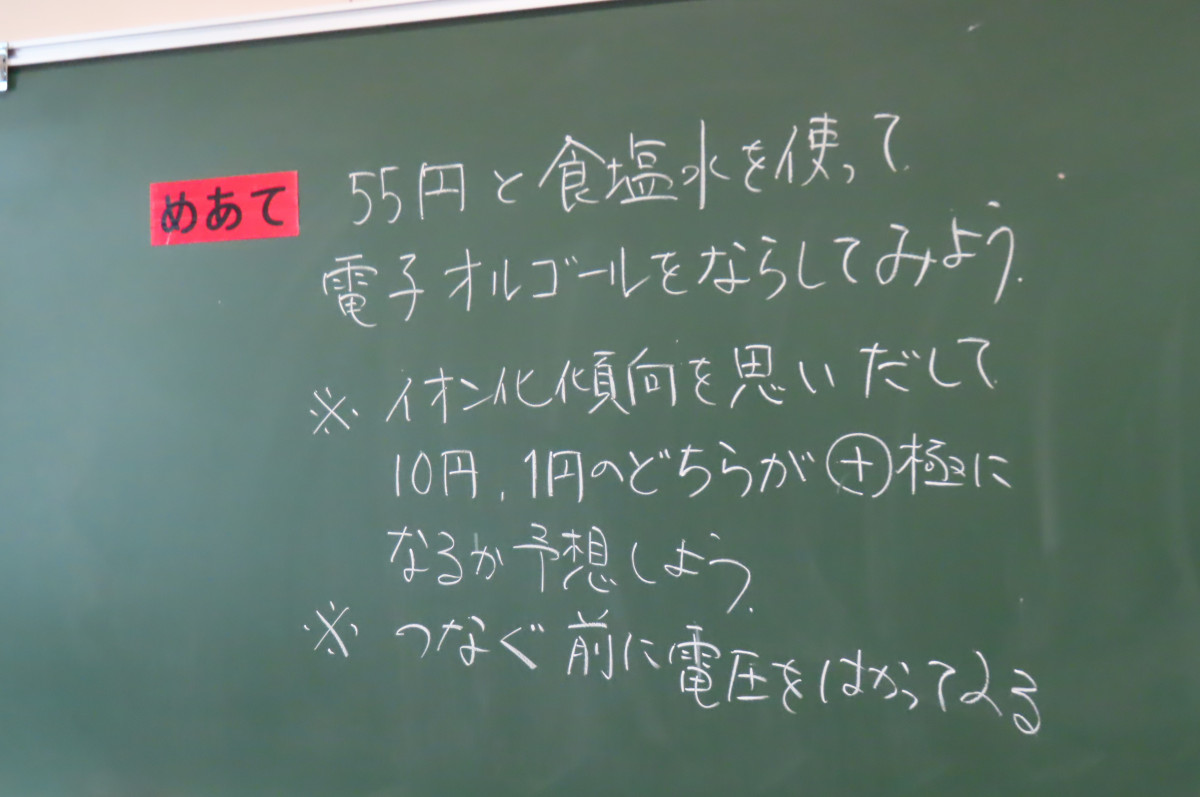 めあて 55円と食塩水を使って
電子オルゴールをならしてみよう.
※ イオン化傾向を思いだして
10円、1円のどちらが⊕極に
なるか予想しよう.
※ つなぐ前に電圧をはかってみる